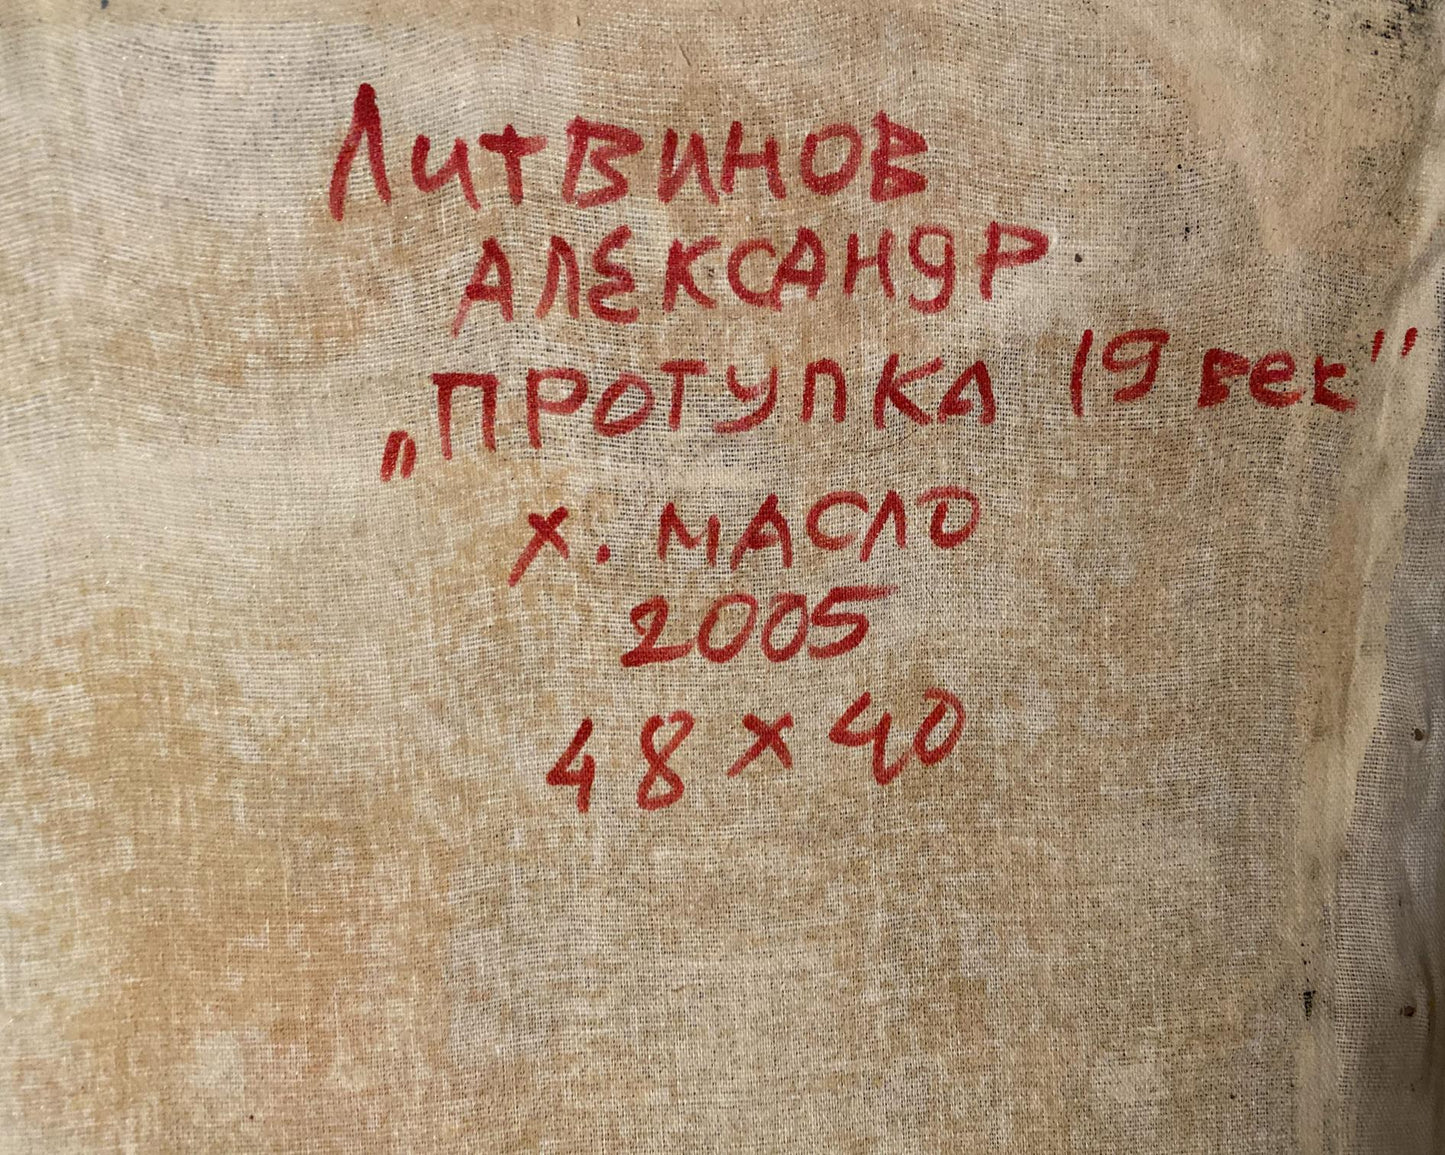 Литвинов
АЛЕКСАНДР
„ПРОТУПКА 19 век"
х. МАСЛО
2005
48 х 40